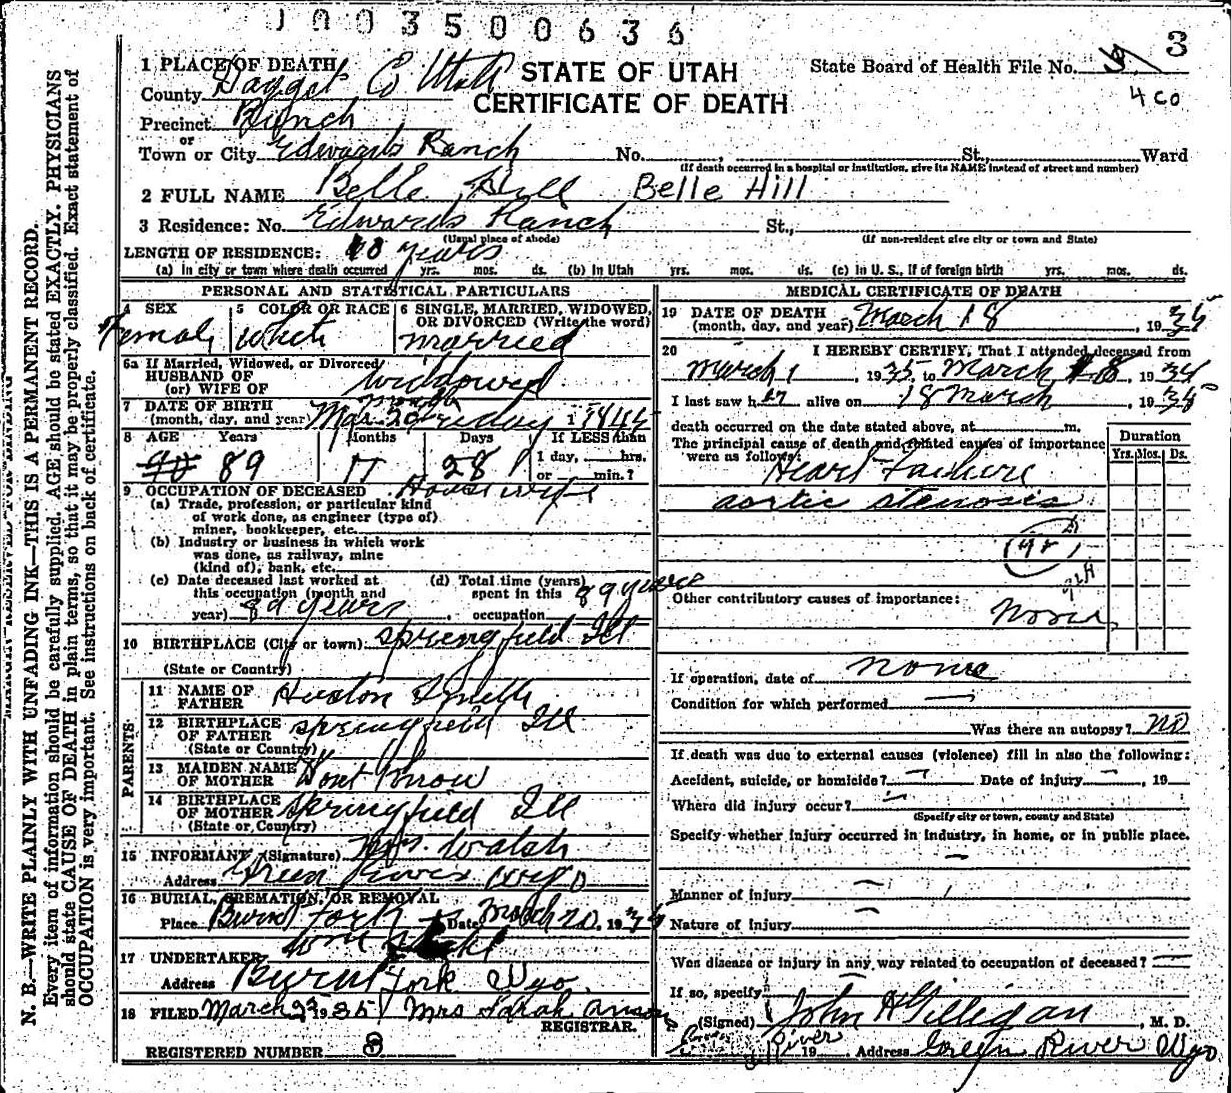 1003500636
3
1 PLACE OF DEATH
STATE OF UTAH
CERTIFICATE OF DEATH
State Board of Health File No.
4 co
County Dagget Co Utah
Precinct Birch
or
Town or City Edwards Ranch No. , St., Ward
(If death occurred in a hospital or institution, give its NAME instead of street and number)
2 FULL NAME Belle Hill Belle Hill
3 Residence: No. Edwards Ranch St.,
(Usual place of abode) (If non-resident give city or town and State)
LENGTH OF RESIDENCE: years
(a) In city or town where death occurred yrs. mos. ds. (b) In Utah yrs. mos. ds. (c) In U. S., if of foreign birth yrs. mos. ds.
PERSONAL AND STATISTICAL PARTICULARS
4 SEX Female
5 COLOR OR RACE white
6 SINGLE, MARRIED, WIDOWED, OR DIVORCED (Write the word) married
6a If Married, Widowed, or Divorced
HUSBAND OF
(or) WIFE OF widowed
7 DATE OF BIRTH
(month, day, and year) Mar 20 1845
8 AGE Years Months Days If LESS than
1 day, hrs.
or min.?
90 89 11 28
9 OCCUPATION OF DECEASED Housewife
(a) Trade, profession, or particular kind
of work done, as engineer (type of)
miner, bookkeeper, etc.
(b) Industry or business in which work
was done, as railway, mine
(kind of), bank, etc.
(c) Date deceased last worked at
this occupation (month and
year) 89 years
(d) Total time (years)
spent in this
occupation 89 years
10 BIRTHPLACE (City or town) Springfield Ill
(State or Country)
PARENTS
11 NAME OF
FATHER Huston Smith
12 BIRTHPLACE
OF FATHER Springfield Ill
(State or Country)
13 MAIDEN NAME
OF MOTHER Dont Know
14 BIRTHPLACE
OF MOTHER Springfield Ill
(State or Country)
15 INFORMANT (Signature) Walsh
Address Green River Wyo
16 BURIAL, CREMATION, OR REMOVAL
Place Burnt Fork Date March 20, 1935
17 UNDERTAKER
Address Burnt Fork Wyo.
18 FILED March 1935 Mrs Sarah Anson
REGISTRAR.
REGISTERED NUMBER 3
MEDICAL CERTIFICATE OF DEATH
19 DATE OF DEATH
(month, day, and year) March 18, 1935
20 I HEREBY CERTIFY, That I attended deceased from
March 1, 1935, to March 18, 1935
I last saw her alive on 18 March, 1935
death occurred on the date stated above, at m.
The principal cause of death and related causes of importance
were as follows:
Duration
Yrs. Mos. Ds.
Heart Failure
aortic stenosis
Other contributory causes of importance:
None
If operation, date of none
Condition for which performed —
Was there an autopsy? no
If death was due to external causes (violence) fill in also the following:
Accident, suicide, or homicide? — Date of injury — , 19
Where did injury occur? —
(Specify city or town, county and State)
Specify whether injury occurred in industry, in home, or in public place.
—
Manner of injury —
Nature of injury —
Was disease or injury in any way related to occupation of deceased? —
If so, specify
(Signed) John H Gilligan, M. D.
River 19 Address Green River Wyo
N. B.—WRITE PLAINLY WITH UNFADING INK—THIS IS A PERMANENT RECORD.
Every item of information should be carefully supplied. AGE should be stated EXACTLY. PHYSICIANS
should state CAUSE OF DEATH in plain terms, so that it may be properly classified. Exact statement of
OCCUPATION is very important. See instructions on back of certificate.